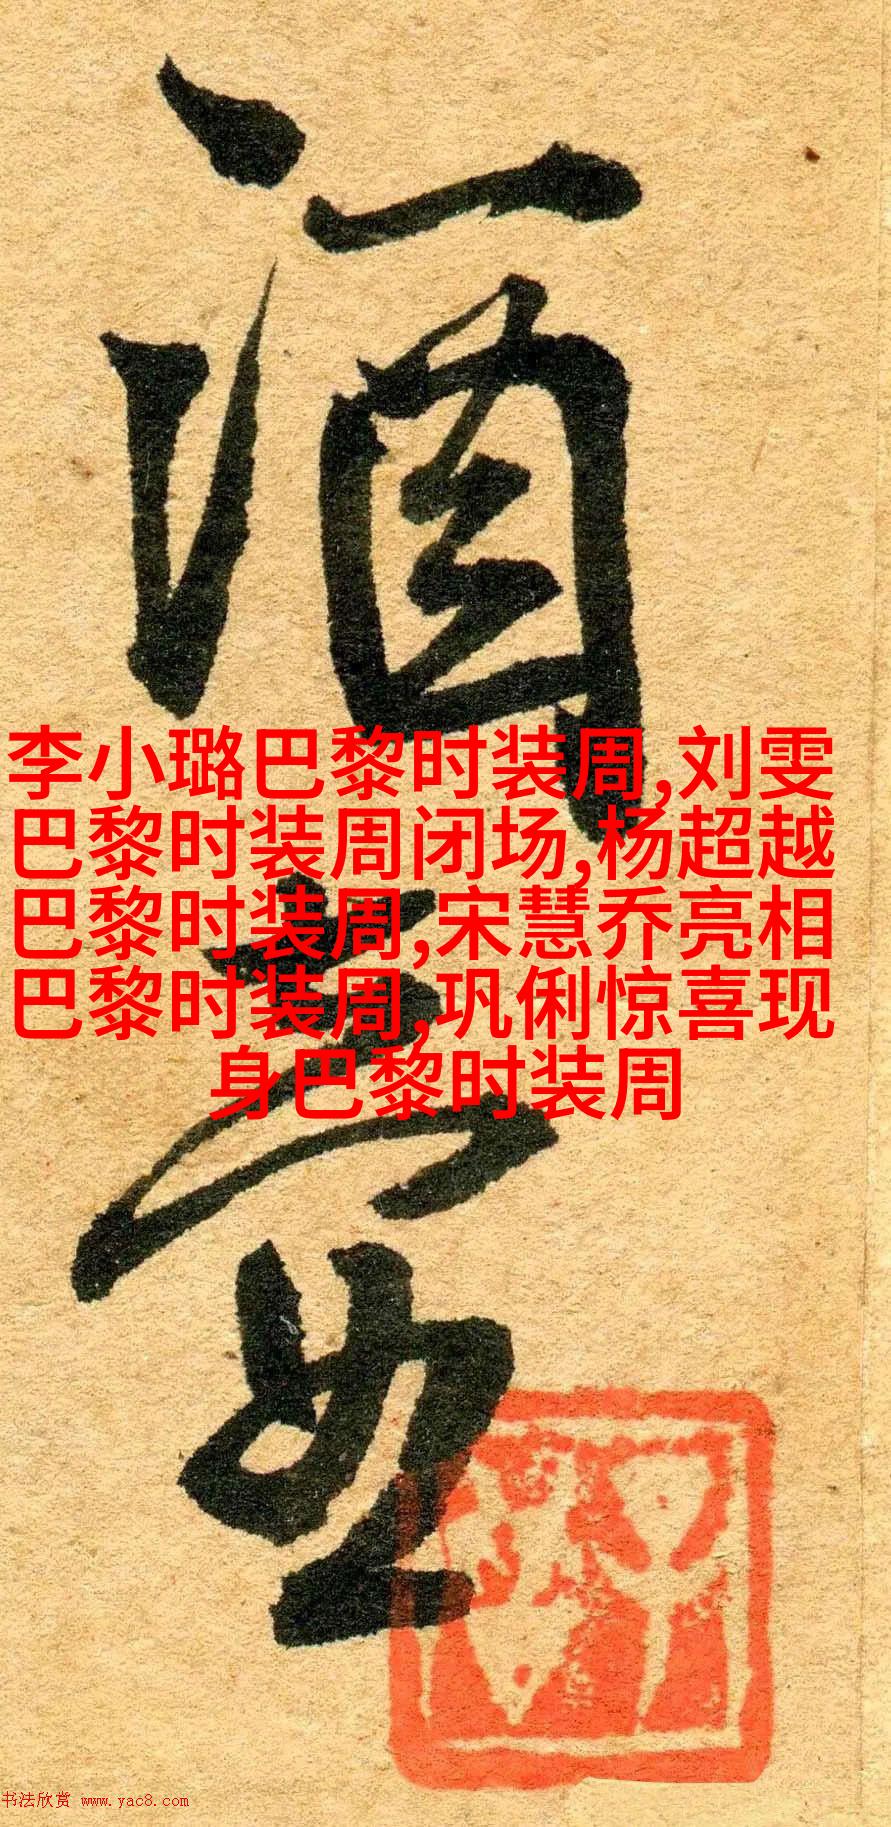 酒
李小璐巴黎时装周,刘雯
巴黎时装周闭场,杨超越
巴黎时装周,宋慧乔亮相
巴黎时装周,巩俐惊喜现
身巴黎时装周
书法欣赏 www.yac8.com